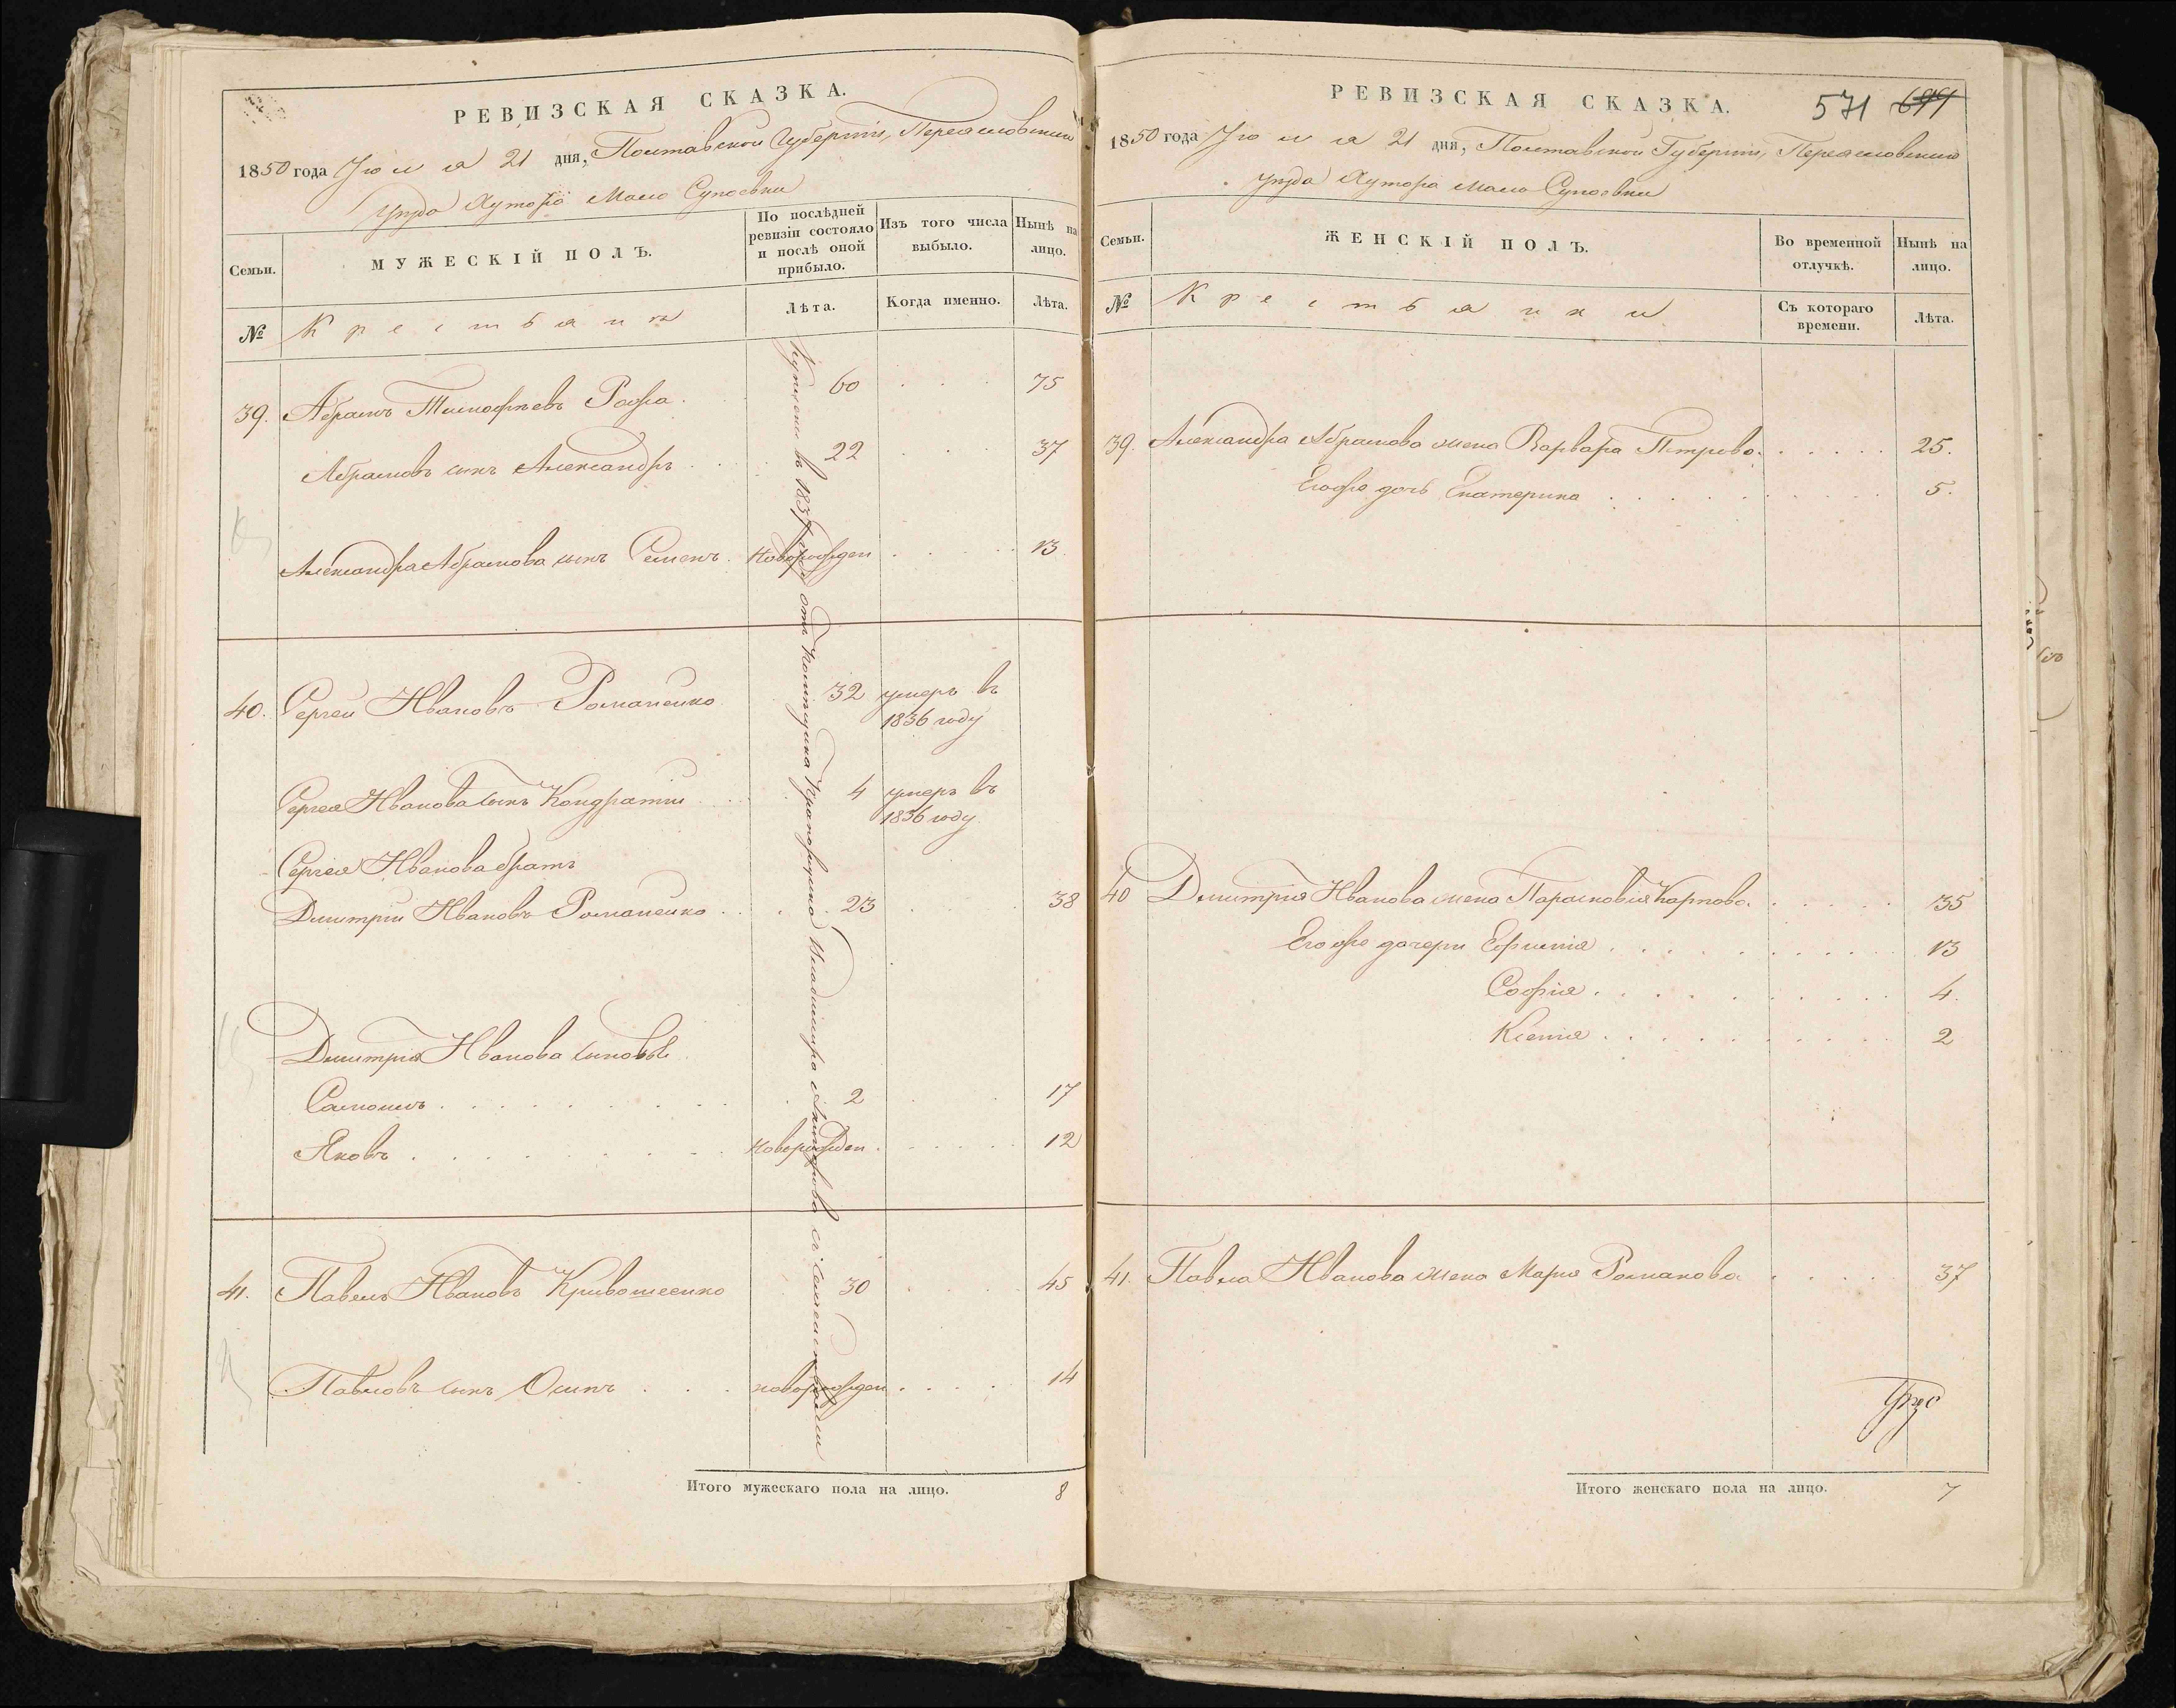 РЕВИЗСКАЯ СКАЗКА.
1850 года Іюля 21 дня, Полтавской Губерніи, Переяславскаго
уѣзда Хутора Мало Супоевки
Семьи. МУЖЕСКІЙ ПОЛЪ. По послѣдней ревизіи состояло и послѣ оной прибыло. Изъ того числа выбыло. Нынѣ на лицо.
№ Крестьянъ Лѣта. Когда именно. Лѣта.
39. Абрамъ Тимофѣевъ 60 75
Абрамовъ сынъ Александръ 22 37
Александра Абрамова сынъ Семенъ новорожден 13
40. Сергей Ивановъ Романенко 32 умеръ въ
1836 году
Сергея Иванова сынъ Кондратій 4 умеръ въ
1836 году
Сергея Иванова братъ
Дмитрій Ивановъ Романенко 23 38
Дмитрія Иванова сыновья
Самоилъ 2 17
Яковъ новорожден 12
41. Павелъ Ивановъ Кривошеенко 30 45
Павловъ сынъ Осипъ новорожден 14
Куплены въ 1837 году отъ помѣщика Прапорщика Владимира с семействами
Итого мужескаго пола на лицо. 8
РЕВИЗСКАЯ СКАЗКА. 571
1850 года Іюля 21 дня, Полтавской Губерніи, Переяславскаго
уѣзда Хутора Мало Супоевки
Семьи. ЖЕНСКІЙ ПОЛЪ. Во временной отлучкѣ. Нынѣ на лицо.
№ Крестьянки Съ котораго времени. Лѣта.
39. Александра Абрамова жена Варвара Петрова 25.
Егоже дочь Екатерина 5.
40 Дмитрія Иванова жена Парасковія Карпова 35
Егоже дочери Ефимія 13
Софія 4.
Ксенія 2
41. Павла Иванова жена Марія Романова 37
Итого женскаго пола на лицо. 7